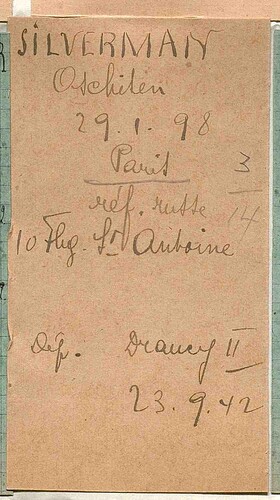 SILVERMAN
Oschilen
29.1.98
Paris
3
réf. russe
14
10 Fbg. St Antoine
Dép. Drancy II
23.9.42